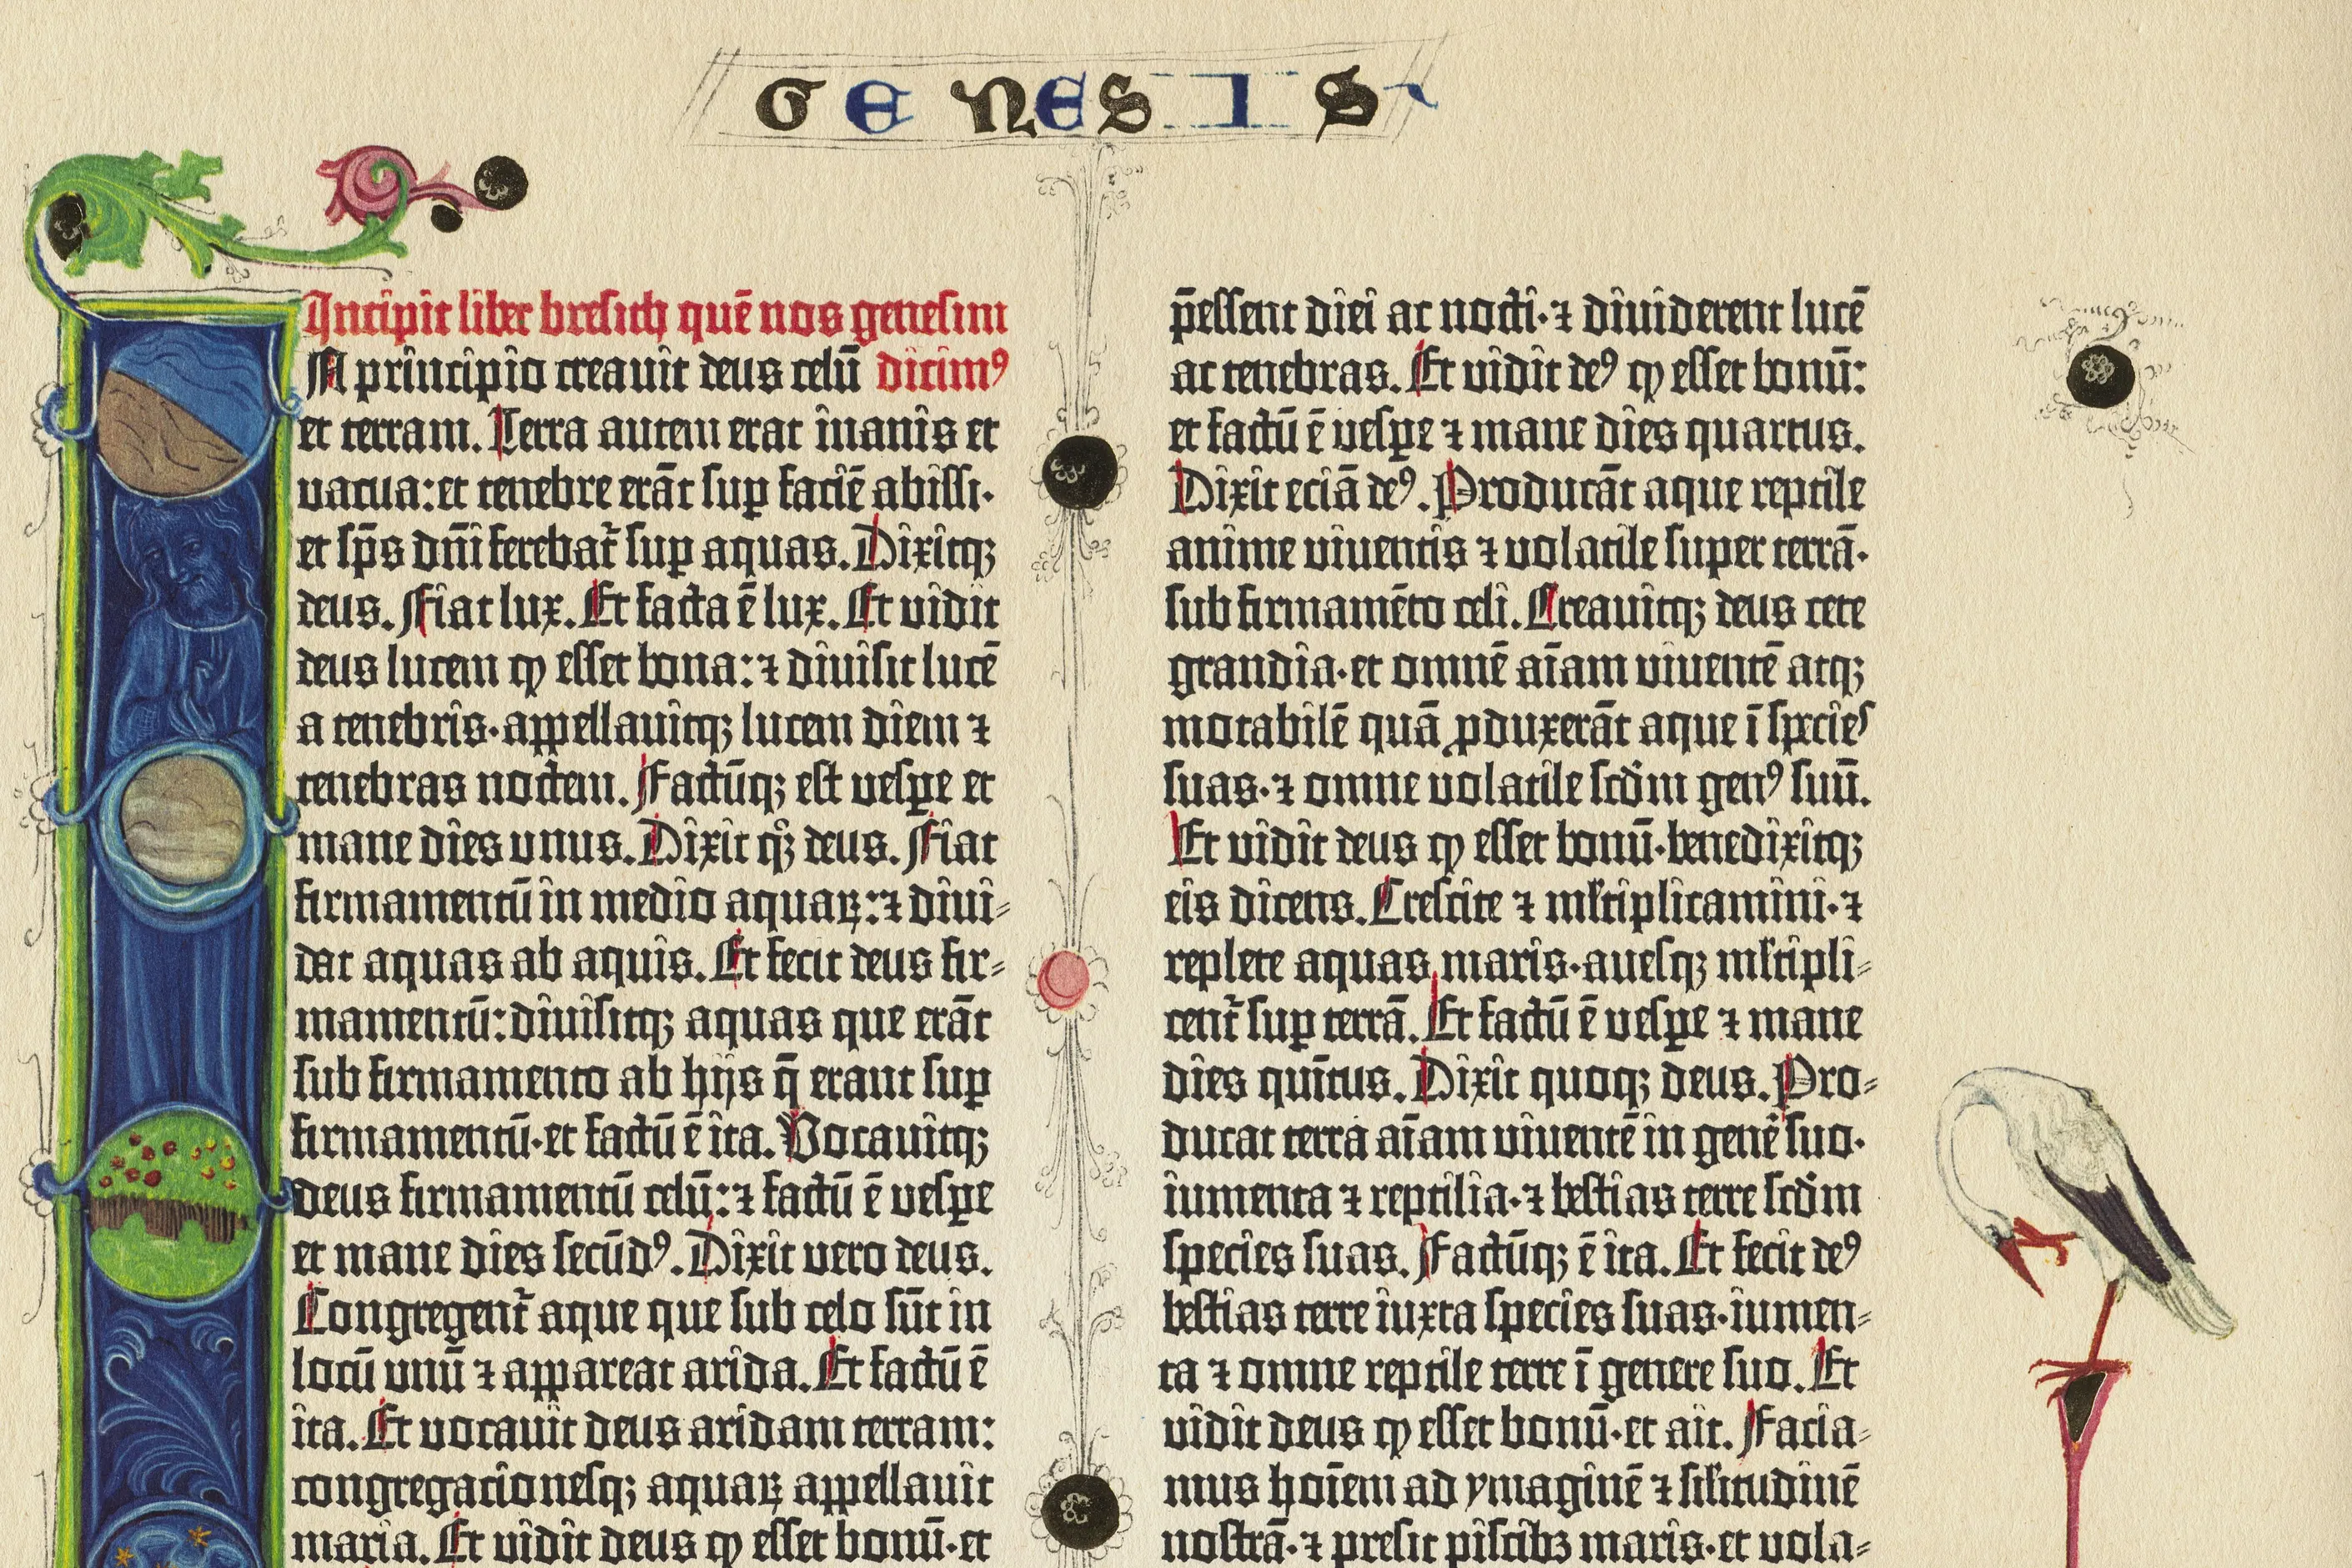 GENESIS
Incipit liber bresith quē nos genesim
N principio creauit deus celū dicimꝰ
et terram. Terra autem erat inanis et
uacua: et tenebre erāt sup faciē abissi·
et sp̄s dn̄i ferebat᷑ sup aquas. Dixitqꝫ
deus. Fiat lux. Et facta ē lux. Et uidit
deus lucem ꝙ esset bona: ⁊ diuisit lucē
a tenebris· appellauitqꝫ lucem diem ⁊
tenebras noctem. Factūqꝫ est uesꝑe et
mane dies unus. Dixit qͦꝫ deus. Fiat
firmamentū in medio aquaꝝ: ⁊ diui⸗
dat aquas ab aquis. Et fecit deus fir⸗
mamentū: diuisitqꝫ aquas que erāt
sub firmamento ab hijs q̄ erant suꝑ
firmamentū· et factū ē ita. Vocauitqꝫ
deus firmamentū celū: ⁊ factū ē uesꝑe
et mane dies secūdꝰ. Dixit uero deus.
Congregent᷑ aque que sub celo sūt in
locū unū ⁊ appareat arida. Et factū ē
ita. Et uocauit deus aridam terram:
congregacionesqꝫ aquaꝝ appellauit
maria. Et uidit deus ꝙ esset bonū· et
p̄essent diei ac nocti· ⁊ diuiderent lucē
ac tenebras. Et uidit deꝰ ꝙ esset bonū:
et factū ē uesꝑe ⁊ mane dies quartus.
Dixit eciā deꝰ. Producāt aque reptile
anime uiuentis ⁊ uolatile super terrā·
sub firmamēto celi. Creauitqꝫ deus cete
grandia· et omnē aīam uiuentē atqꝫ
motabilē quā ꝓduxerāt aque ī species
suas· ⁊ omne uolatile scd̄m genꝰ suū.
Et uidit deus ꝙ esset bonū· benedixitqꝫ
eis dicens. Crescite ⁊ ml̄tiplicamini· ⁊
replete aquas maris· auesqꝫ ml̄tipli⸗
cent᷑ suꝑ terrā. Et factū ē uesꝑe ⁊ mane
dies quītus. Dixit quoqꝫ deus. Pro⸗
ducat terra aīam uiuentē in genē suo·
iumenta ⁊ reptilia· ⁊ bestias terre scd̄m
species suas. Factūqꝫ ē ita. Et fecit deꝰ
bestias terre iuxta species suas· iumen⸗
ta ⁊ omne reptile terre ī genere suo. Et
uidit deus ꝙ esset bonū· et ait. Facia⸗
mus hoīem ad ymaginē ⁊ sil̄itudinē
nostrā· ⁊ presit piscibꝫ maris· et uola⸗